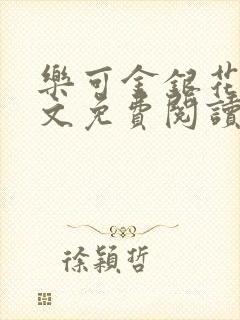 樂可金銀花
文免費閱讀
徐穎哲